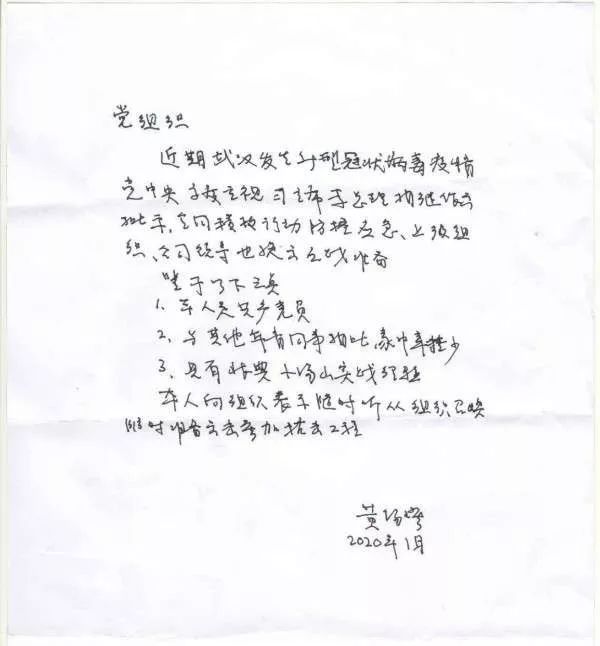 党组织
近期武汉发生新型冠状病毒疫情
党中央高度重视 习主席李总理相继作出
批示,全国积极行动防控应急、上级组
织、公司领导也提出应战准备
鉴于以下三点
1. 本人是共产党员
2. 与其他年青同事相比,家中牵挂少
3. 具有非典小汤山实战经验
本人向组织表示随时听从组织召唤
随时准备出击参加抗击工程
黄
2020年1月